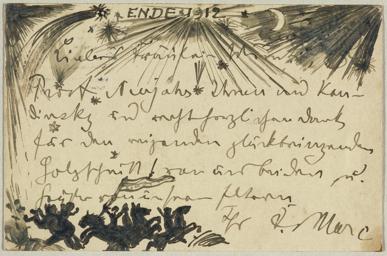 ENDE 1912
Liebes Fräulein
Prosit Neujahr Ihnen und Kan-
dinsky und recht herzlichen Dank
für den reizenden glückbringenden
Holzschnitt! von uns beiden u.
Ihr F. Marc